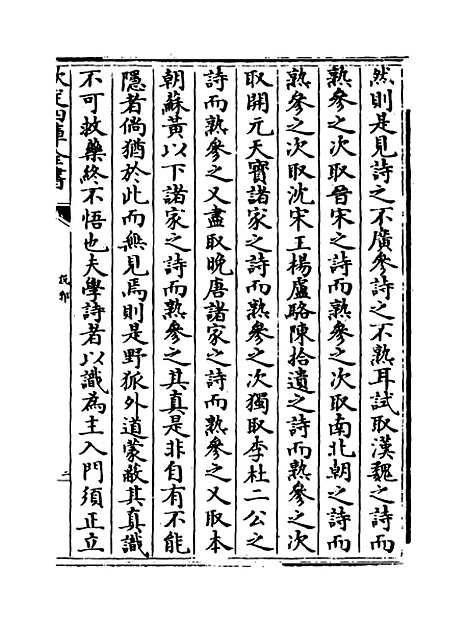 然則是見詩之不廣參詩之不熟耳試取漢魏之詩而
熟參之次取晉宋之詩而熟參之次取南北朝之詩而
熟參之次取沈宋王楊盧駱陳拾遺之詩而熟參之次
取開元天寶諸家之詩而熟參之次獨取李杜二公之
詩而熟參之又盡取晚唐諸家之詩而熟參之又取本
朝蘇黃以下諸家之詩而熟參之其真是非自有不能
隱者倘猶於此而無見焉則是野狐外道蒙蔽其真識
不可救藥終不悟也夫學詩者以識為主入門須正立
欽定四庫全書
二